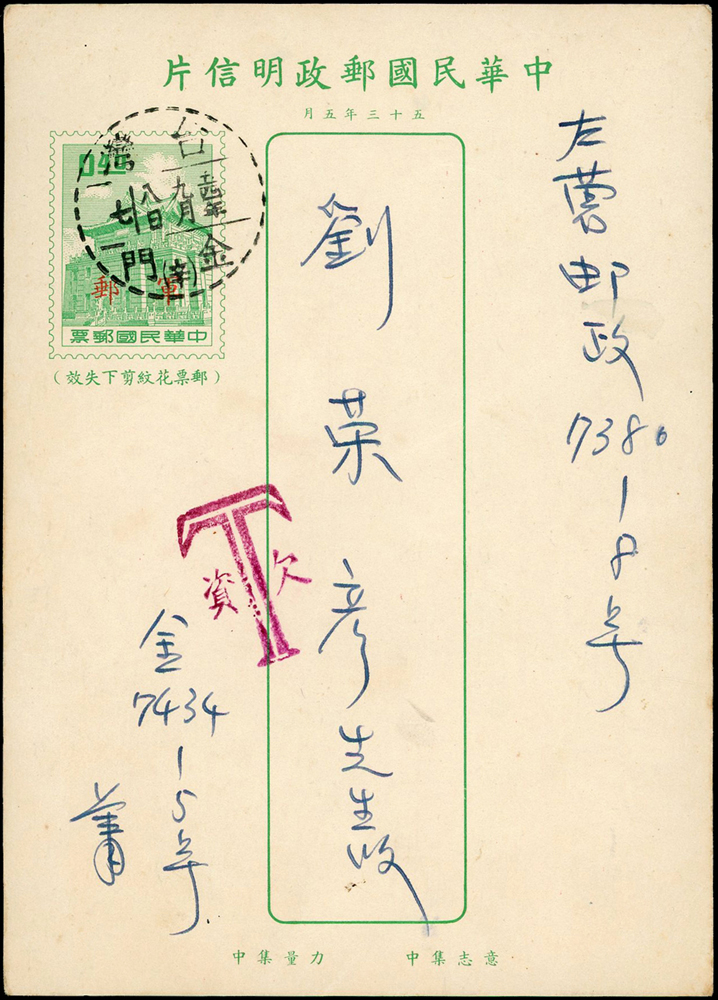 中華民國郵政明信片
五十三年五月
左營郵政
7380
18号
劉榮彦先生收
0.40
軍郵
中華民國郵票
(郵票花紋剪下失效)
台灣
九月
八日
金門
(南)
T
欠資
金
7434
15号
蕭
意志集中
力量集中